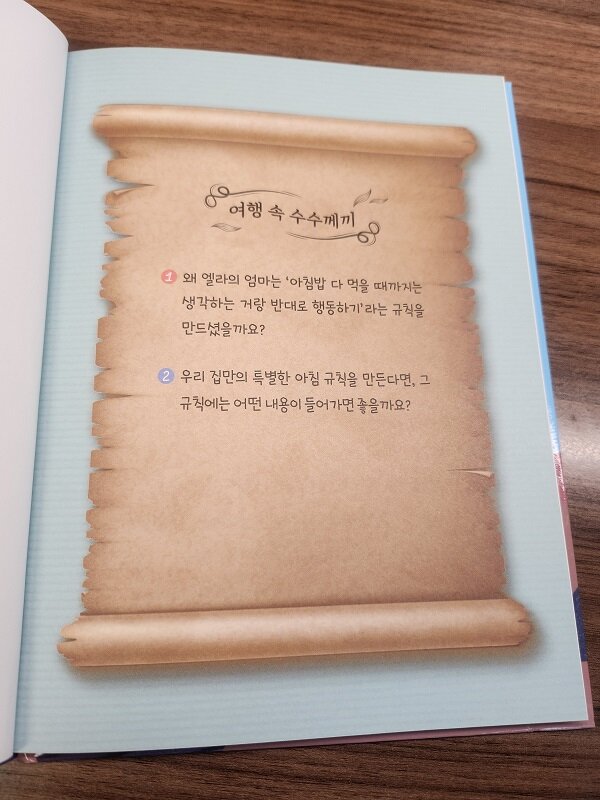 여행 속 수수께끼
1 왜 엘라의 엄마는 '아침밥 다 먹을 때까지는
생각하는 거랑 반대로 행동하기'라는 규칙을
만드셨을까요?
2 우리 집만의 특별한 아침 규칙을 만든다면, 그
규칙에는 어떤 내용이 들어가면 좋을까요?